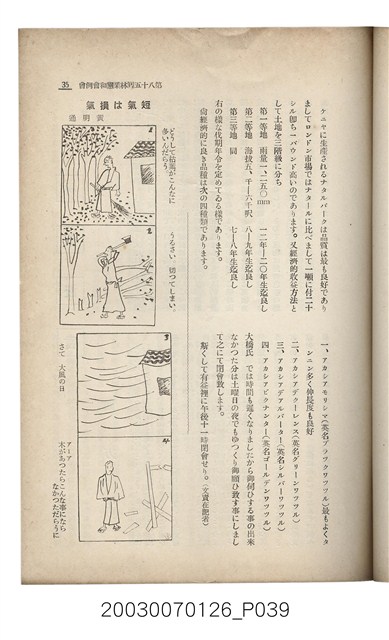 第八十五回林業懇和會例會
35
ケニヤに生産されるナタルバークは品質は最も良好であり
ましてロンドン市場ではナタールに比べまして一噸に付二十
シル卽ち一パウンド高いのであります。又經濟的收益方法と
して土地を三階級に分ち
第一等地 雨量一、二五〇mm 一二年―二〇年生迄良し
第二等地 海拔五、千―六千呎 八―九年生迄良し
第三等地 同 七―八年生迄良し
右の樣な伐期年令を定めてゐる樣であります。
尙經濟的に良き品種は次の四種類であります。
一、アカシアモリシマ(英名ブラックワツツル)最もよくタ
ンニン多く伸長度も良好
二、アカシアデクーレンス(英名グリーンワツツル)
三、アカシアデアルバーター(英名シルバーワツツル)
四、アカシアピクナンター(英名ゴールデンワツツル)
大橋氏 では時間も遲くなりましたから御伺ひする事の出來
なかつた分は土曜日の夜でもゆつくり御願ひ致す事にしまし
て之にて閉會致します。
斯くして有益裡に午後十一時閉會せり。(文責在記者)
短氣は損氣
黃明通
どうして枯葉がこんなに
多いんだらう。
うるさい、切つてしまい。
さて 大風の日
アーア
木があつたらこんな事になら
なかつただらうに
20030070126_P039